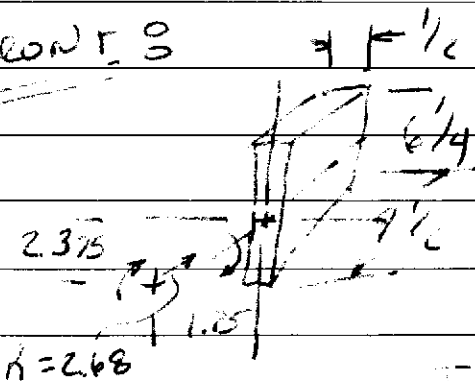 CONT.
1/2
6 1/4
4 1/2
2.375
1.25
r = 2.68